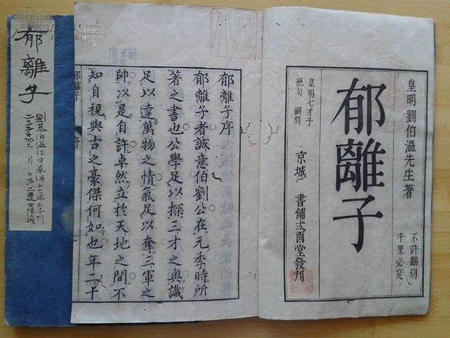 皇明劉伯温先生著
不許翻刻
千里必究
郁離子
皇明七才子
絶句 嗣刻
京城 書鋪弍酉堂發刊
郁離子序
郁離子者誠意伯劉公在元季時所
著之書也公學足以探三才之奥識
足以達萬物之情氣足以奪三軍之
帥以是自許卓然立於天地之間不
知自視與古之豪傑何如也年二十
郁離子
郁離子